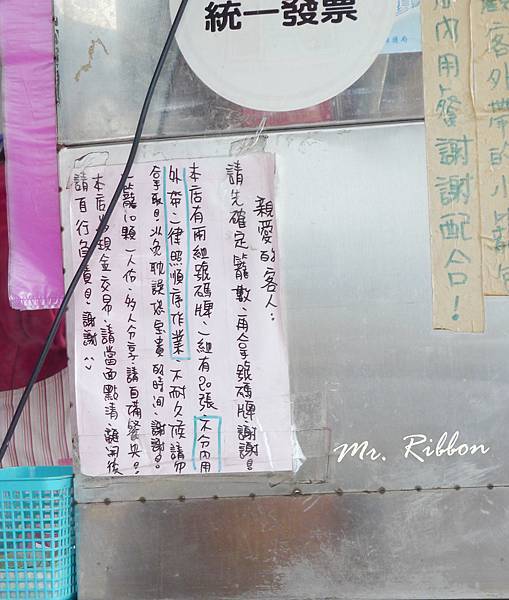 統一發票
親愛的客人:
請先確定籠數、再拿號碼牌謝謝!
本店有兩組號碼牌、一組有20張、不分內用
外帶、一律照順序作業、不耐久候請勿
拿取!以免耽誤您寶貴的時間、謝謝!
一籠10顆一人份、多人分享、請自備餐具!
本店為現金交易、請當面點清、離開後
請自行負責!謝謝
客外帶的小
內用 謝謝配合!
Mr. Ribbon